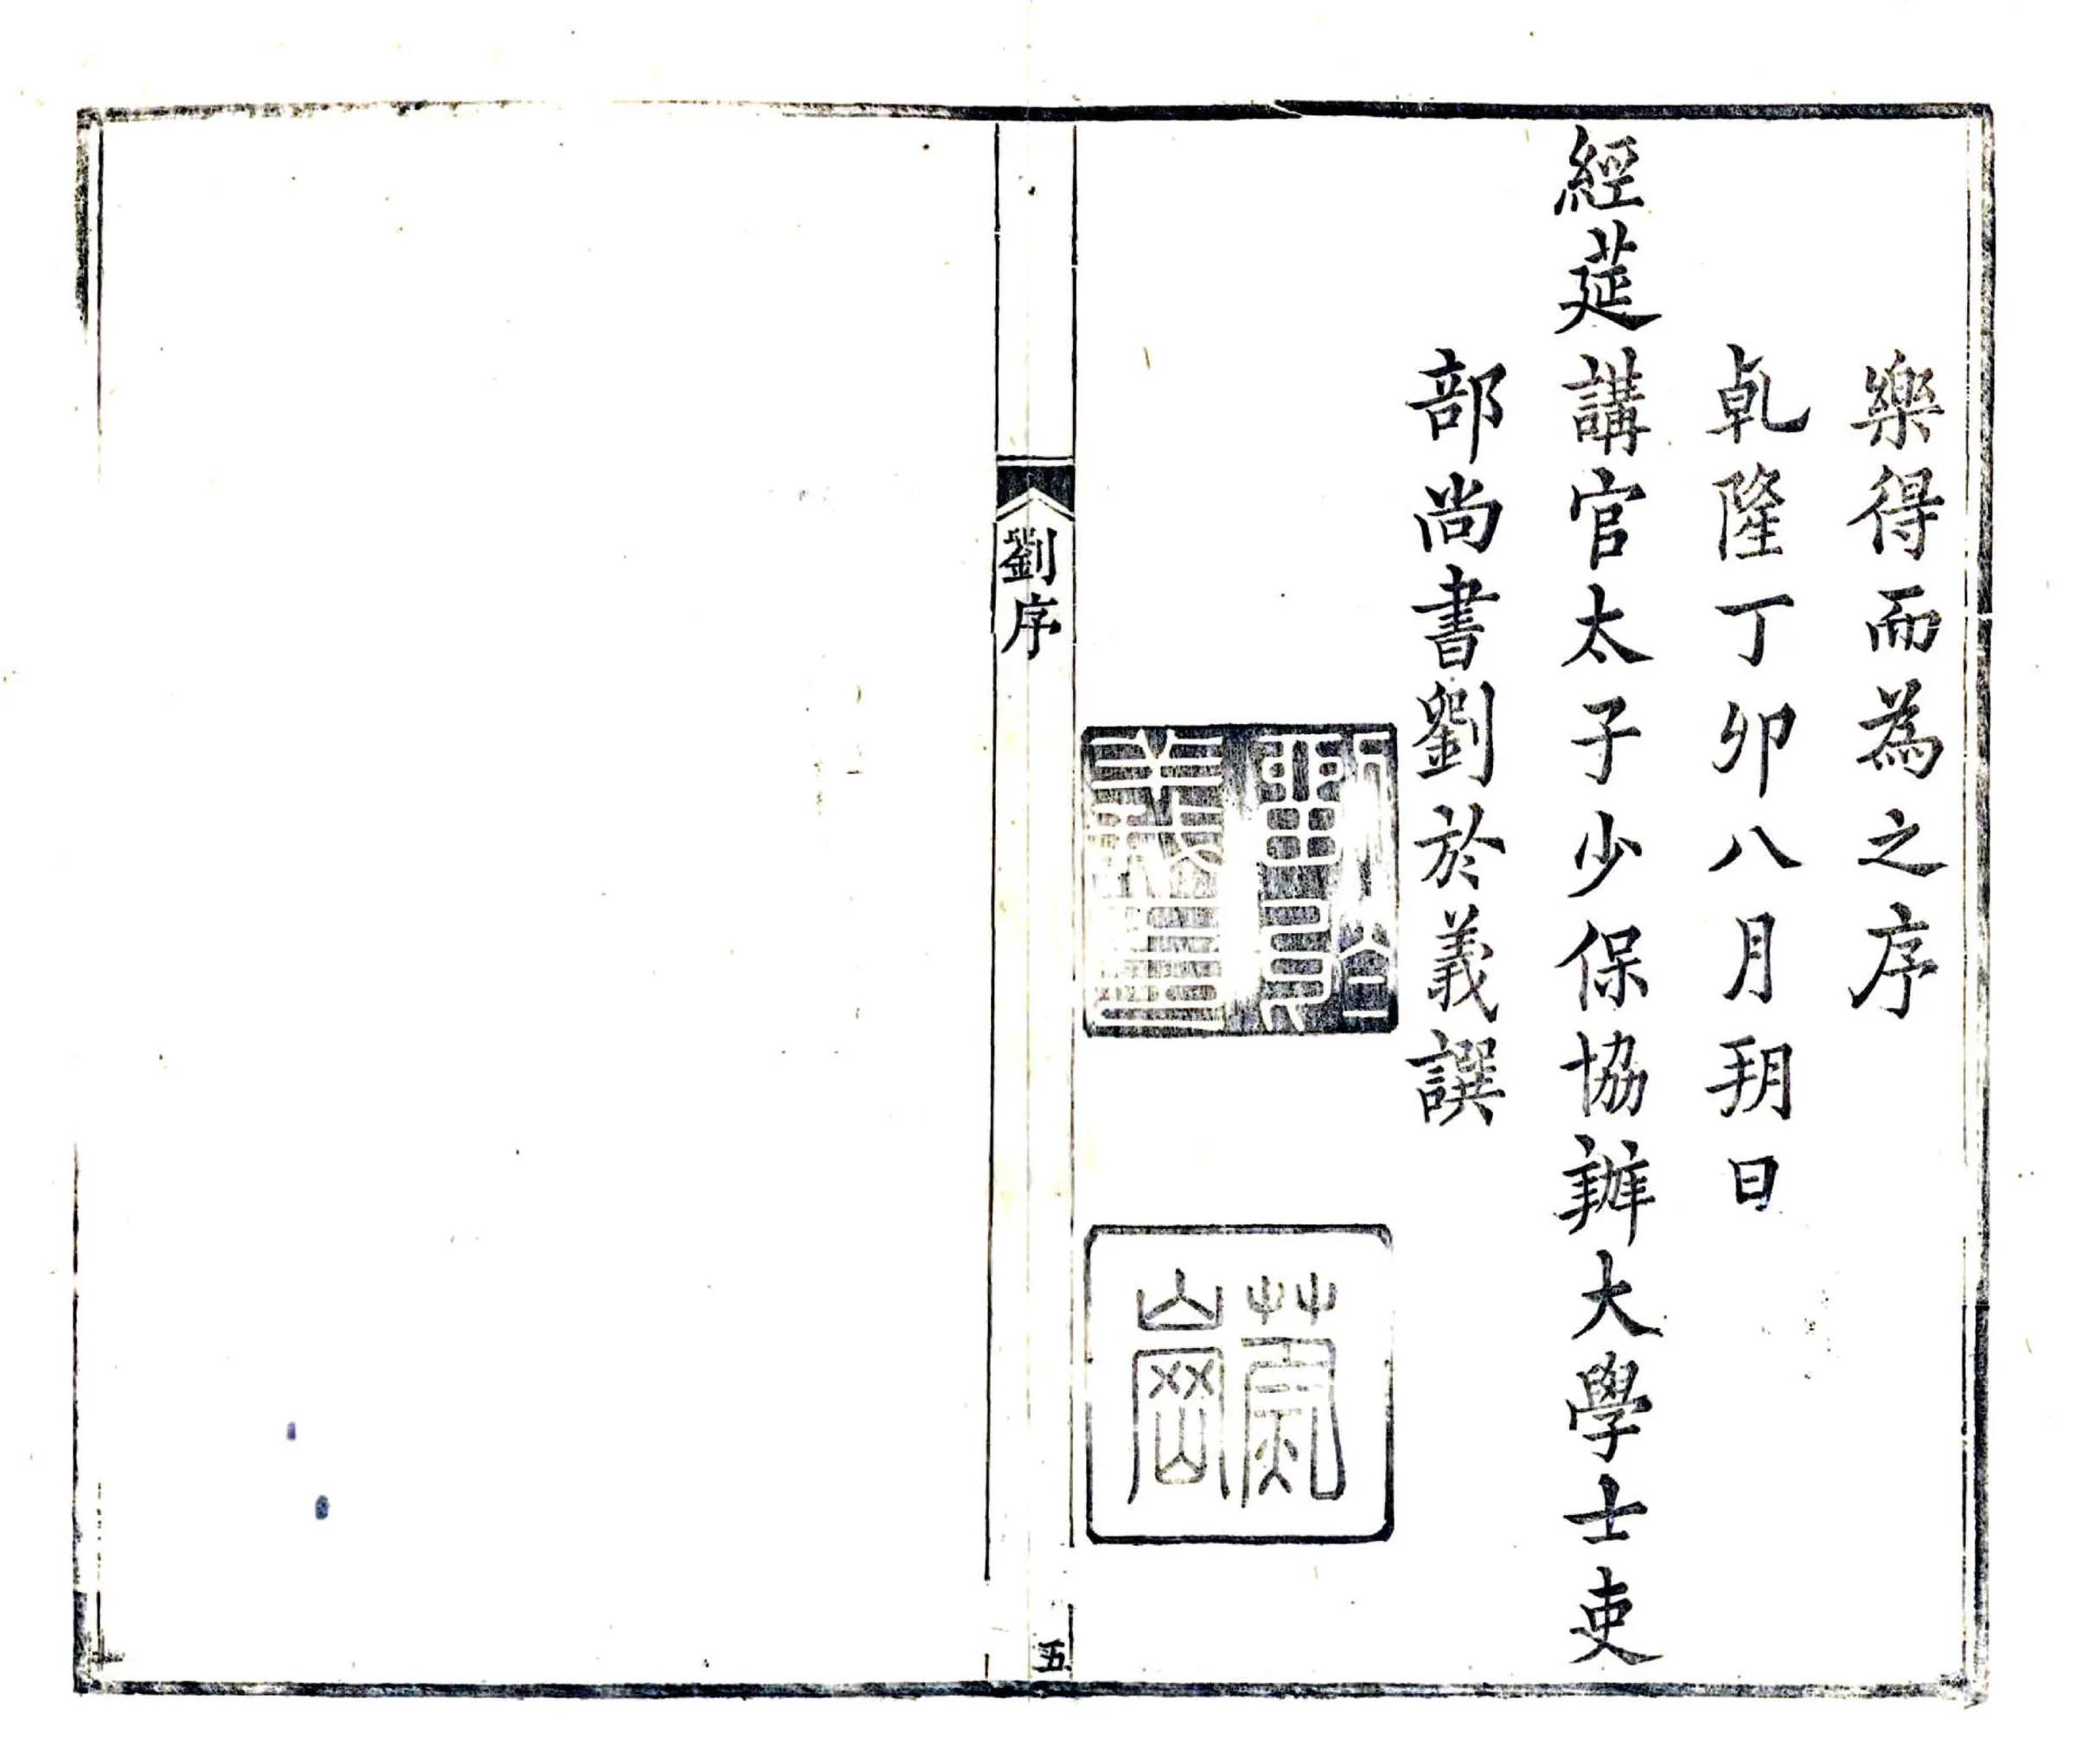 樂得而為之序
乹隆丁卯八月朔日
經莚講官太子少保協辦大學士吏
部尚書劉於義譔
劉序
五